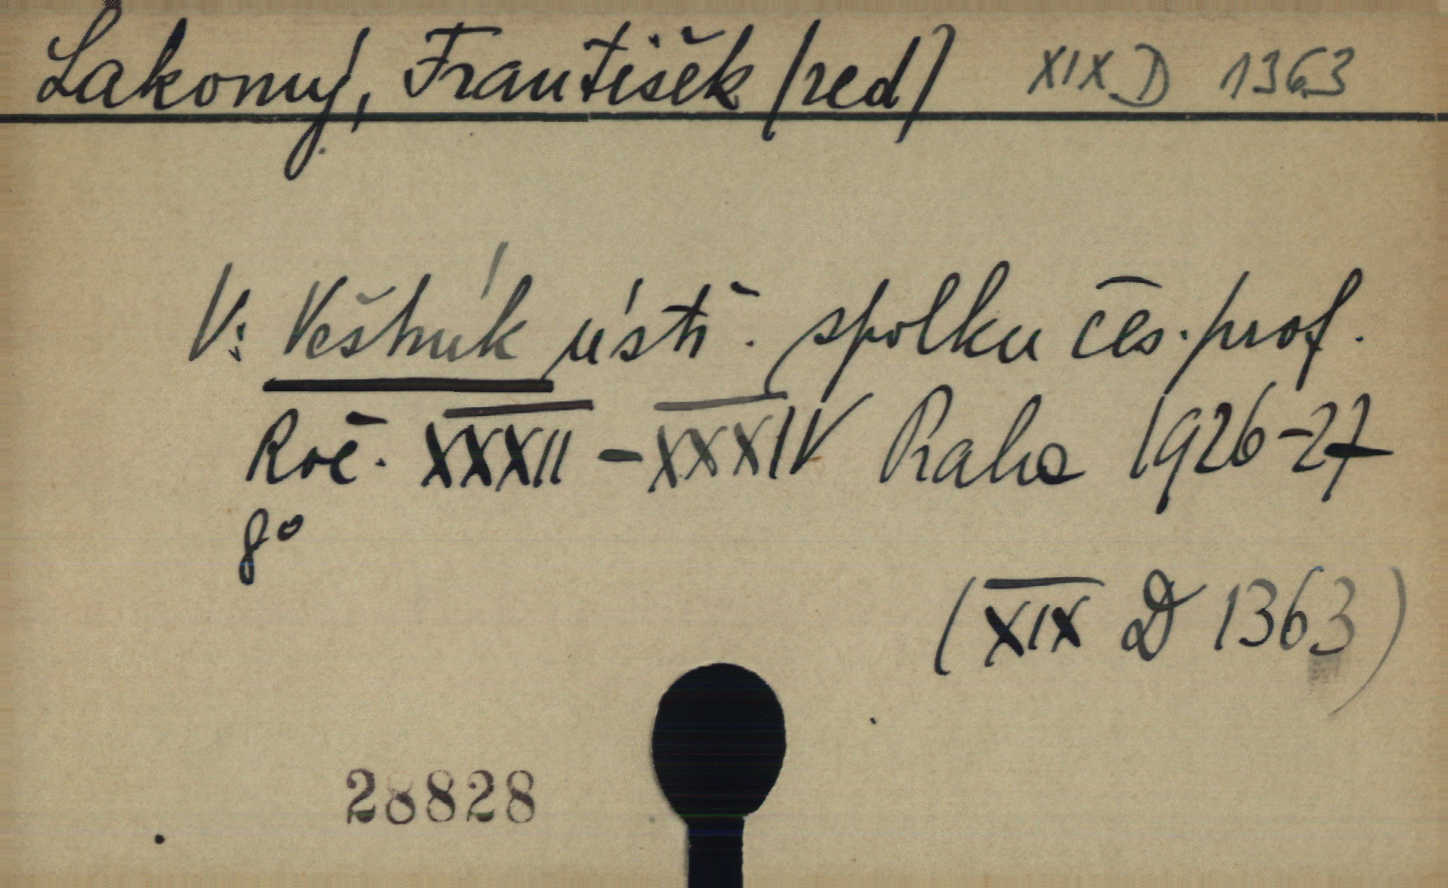 Lakomý, František /red/ XIX D 1363
V: Věstník ústř. spolku čes. prof.
Roč. XXXII - XXXIV Praha 1926-27
8°
(XIX D 1363)
28828